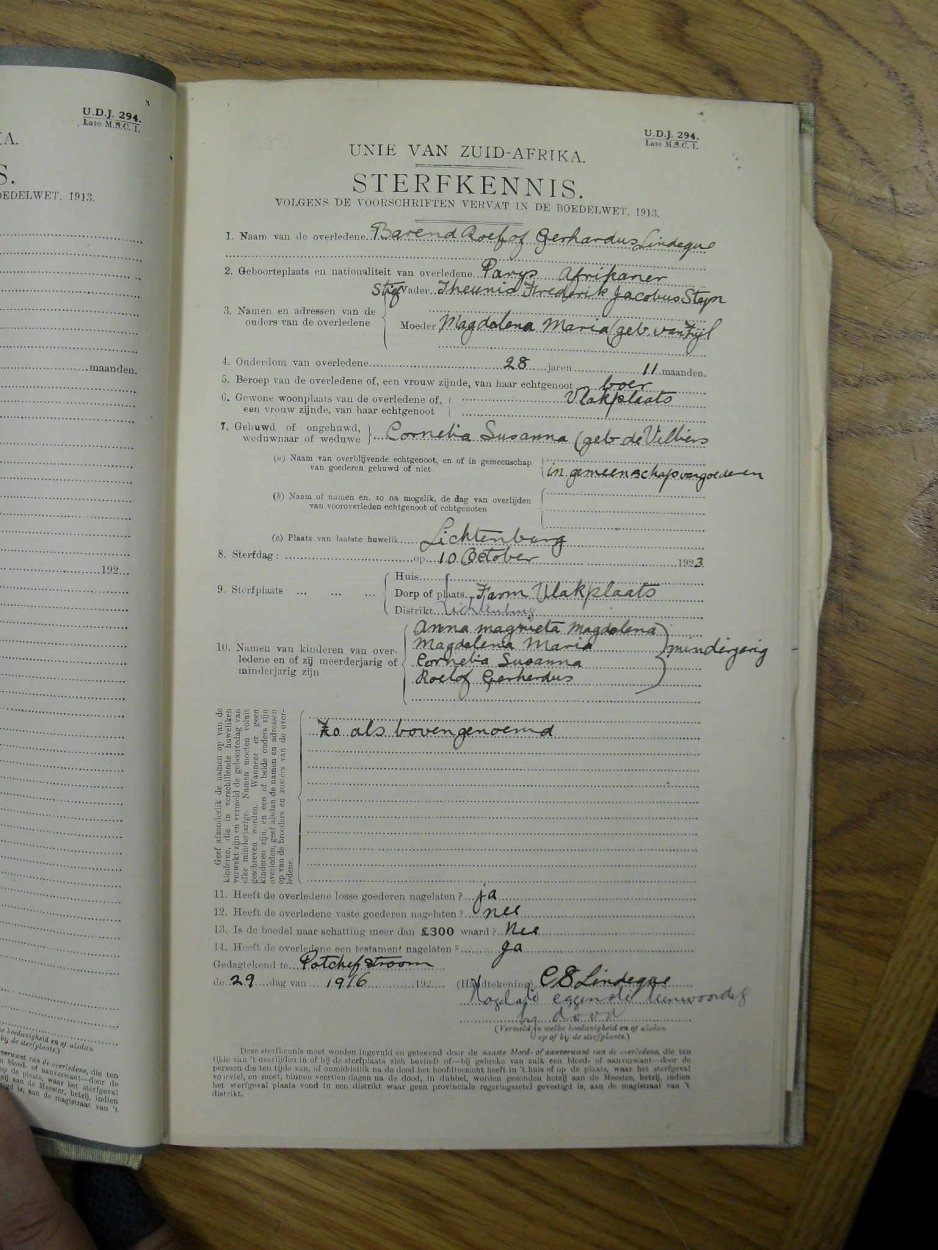 U.D.J. 294.
Late M.S.C. 1.
EDELWET, 1913.
maanden.
192
U.D.J. 294.
Late M.S.C. 1.
UNIE VAN ZUID-AFRIKA.
STERFKENNIS.
VOLGENS DE VOORSCHRIFTEN VERVAT IN DE BOEDELWET, 1913.
1. Naam van de overledene Barend Roelof Gerhardus Lindeque
2. Geboorteplaats en nationaliteit van overledene Parys Afrikaner
3. Namen en adressen van de ouders van de overledene
Stief Vader Theunis Frederik Jacobus Steyn
Moeder Magdalena Maria (geb. van Zijl
4. Ouderdom van overledene 28 jaren 11 maanden.
5. Beroep van de overledene of, een vrouw zijnde, van haar echtgenoot boer
6. Gewone woonplaats van de overledene of, een vrouw zijnde, van haar echtgenoot Vlakplaats
7. Gehuwd of ongehuwd, weduwnaar of weduwe Cornelia Susanna (geb de Villiers
(a) Naam van overblijvende echtgenoot, en of in gemeenschap
van goederen gehuwd of niet in gemeenschap van goederen
(b) Naam of namen en, zo na mogelik, de dag van overlijden
van vooroverleden echtgenoot of echtgenoten
(c) Plaats van laatste huwelik Lichtenburg
8. Sterfdag: op 10 October 1923
9. Sterfplaats
Huis
Dorp of plaats Farm Vlakplaats
Distrikt Lichtenburg
10. Namen van kinderen van overledene en of zij meerderjarig of minderjarig zijn
Anna Magrieta Magdalena
Magdalena Maria
Cornelia Susanna
Roelof Gerherdus
minderjerig
Geef afzonderlik de namen op van de
kinderen, die in verschillende huweliken
verwekt zijn en vermeld de geboortedag van
elke minderjarige. Namen moeten voluit
geschreven worden. Wanneer er geen
kinderen zijn, en een of beide ouders zijn
overleden, geef alsdan de namen en adressen
op van de broeders en zusters van de overledene.
Zo als bovengenoemd
11. Heeft de overledene losse goederen nagelaten? ja
12. Heeft de overledene vaste goederen nagelaten? nee
13. Is de boedel naar schatting meer dan £300 waard? Nee
14. Heeft de overledene een testament nagelaten? ja
Gedagtekend te Potchefstroom
de 29 dag van 1976 192 (Handtekening) C S Lindeque
by dood
(Vermeld in welke hoedanigheid en of alsdan
op of bij de sterfplaats.)
Deze sterfkennis moet worden ingevuld en getekend door de naaste bloed- of aanverwant van de overledene, die ten
tijde van 't overlijden in of bij de sterfplaats zich bevindt of—bij gebreke van zulk een bloed- of aanverwant—door de
persoon die ten tijde van, of onmiddellik na de dood het hoofdtoezicht heeft in 't huis of op de plaats, waar het sterfgeval
voorviel, en moet, binnen veertien dagen na de dood, in dubbel, worden gezonden hetzij aan de Meester, hetzij, indien
het sterfgeval plaats vond in een distrikt waar geen provinciale regeringszetel gevestigd is, aan de magistraat van 't
distrikt.